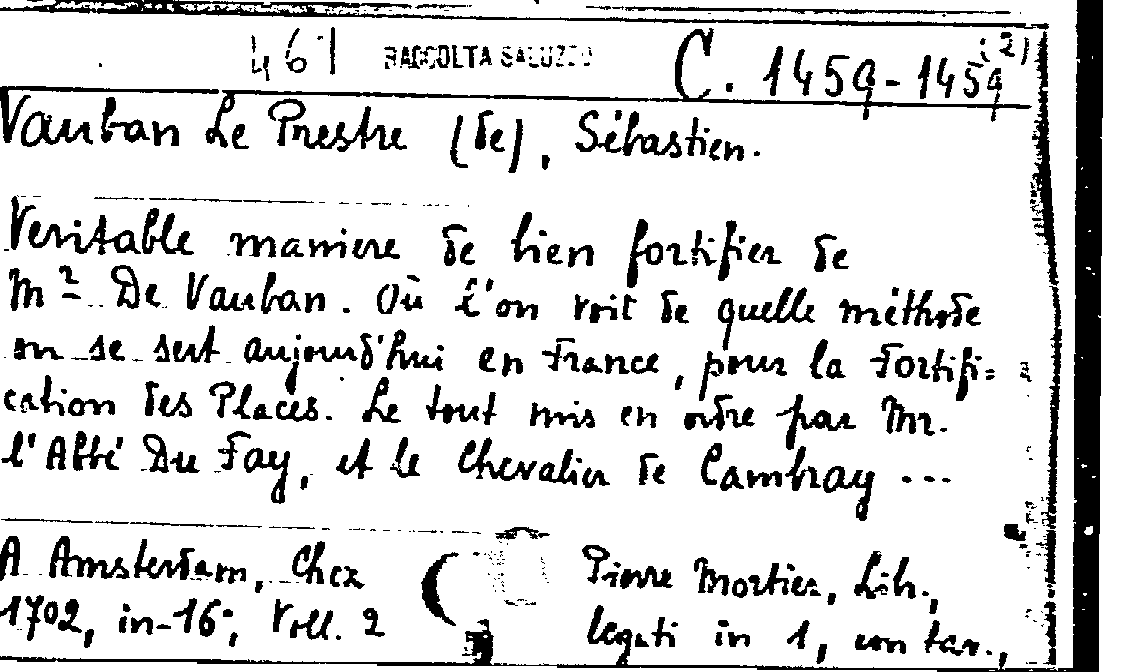 461 RACCOLTA SALUZZO C. 1459-1459 (2)
Vauban Le Prestre (de), Sébastien.
Veritable maniere de bien fortifier de
Mr De Vauban. Où l'on voit de quelle méthode
on se sert aujourd'hui en France, pour la Fortifi=
cation des Places. Le tout mis en ordre par Mr.
l'Abbé Du Fay, et le Chevalier de Cambray ...
A Amsterdam, Chez Pierre Mortier, Lib.,
1702, in-16°, Voll. 2 legati in 1, con tav.,